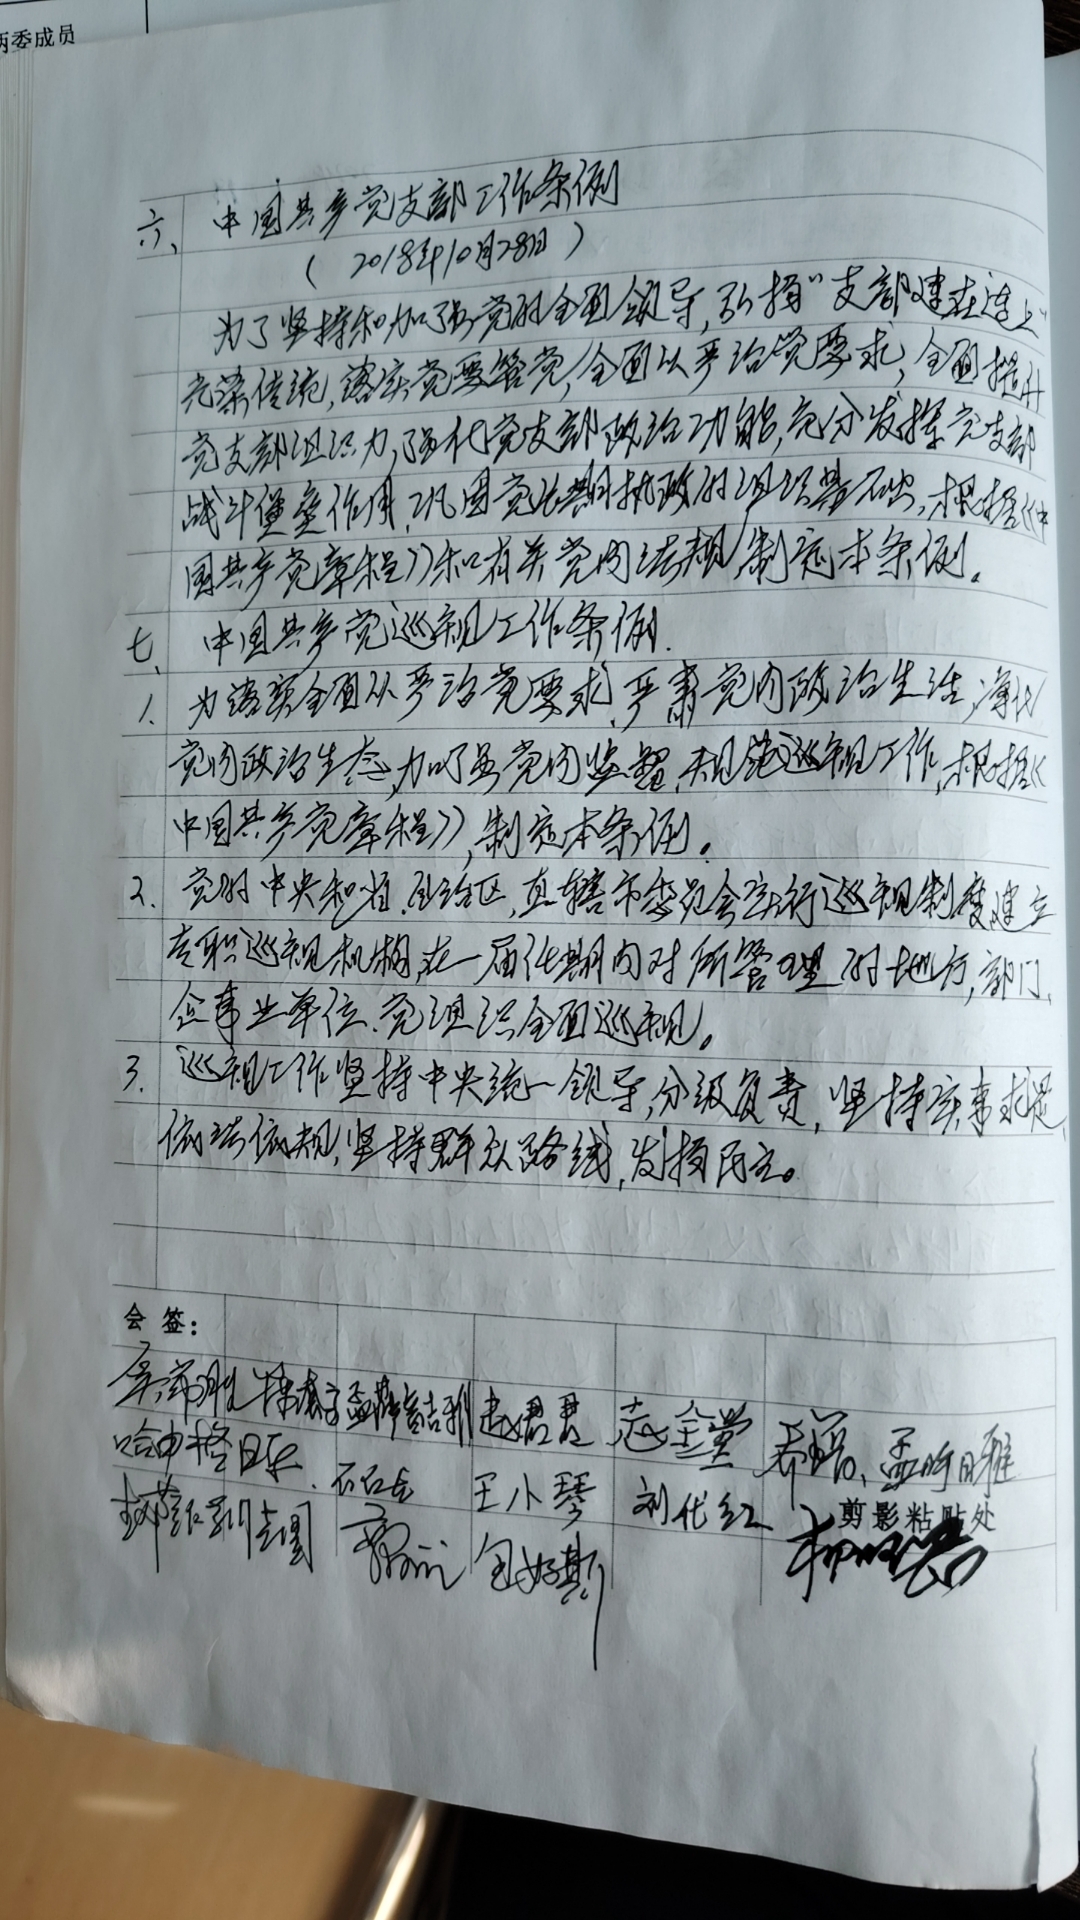 两委成员
六、中国共产党支部工作条例
(2018年10月28日)
为了坚持和加强党的全面领导,弘扬"支部建在连上"
光荣传统,落实党要管党,全面从严治党要求,全面提升
党支部组织力,强化党支部政治功能,充分发挥党支部
战斗堡垒作用,巩固党长期执政的组织基础,根据《中
国共产党章程》和有关党内法规,制定本条例。
七、中国共产党巡视工作条例.
1.为落实全面从严治党要求,严肃党内政治生活,净化
党内政治生态,加强党内监督,规范巡视工作,根据《
中国共产党章程》,制定本条例。
2.党的中央和省.自治区,直辖市委员会实行巡视制度建立
专职巡视机构,在一届任期内对所管理的地方,部门、
企事业单位、党组织全面巡视。
3.巡视工作坚持中央统一领导,分级负责,坚持实事求是,
依法依规,坚持群众路线,发扬民主。
会签:
赵君君
王小琴 刘代红
剪影粘贴处